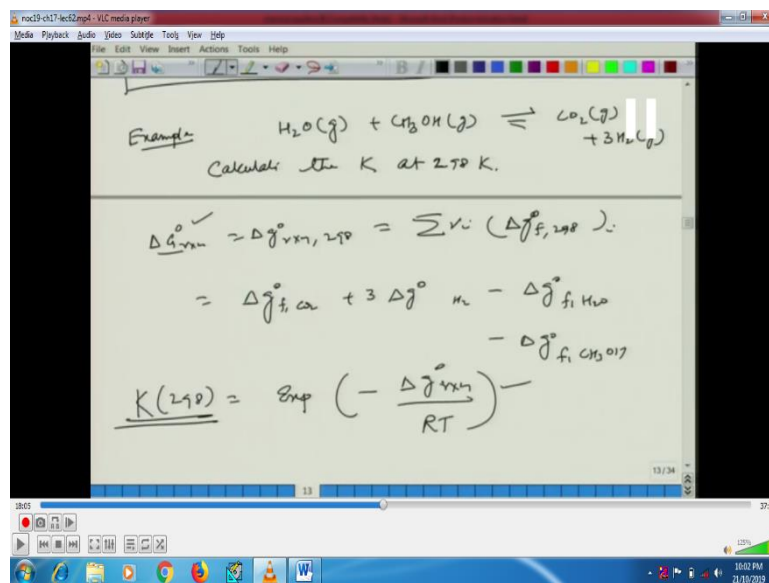 noc19-ch17-lec62.mp4 - VLC media player
Media Playback Audio Video Subtitle Tools View Help
File Edit View Insert Actions Tools Help
Example H₂O(g) + CH₃OH(g) ⇌ CO₂(g)
+ 3H₂(g)
Calculate the K at 298 K.
Δg°rxn = Δg°rxn, 298 = Σνi (Δg°f, 298)i
= Δg°f, CO₂ + 3 Δg° H₂ - Δg°f, H₂O
- Δg°f, CH₃OH
K(298) = Exp (- Δg°rxn / RT)
13/34
13
18:05
125%
10:02 PM
21/10/2019